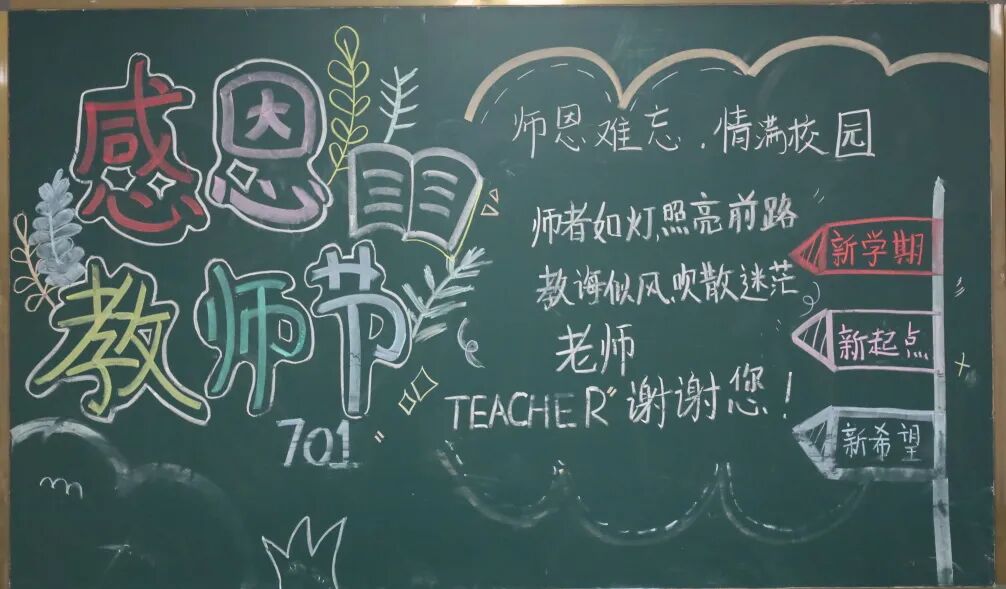 感恩
教师节
701
师恩难忘.情满校园
师者如灯,照亮前路
教诲似风,吹散迷茫
老师
TEACHER"谢谢您!
新学期
新起点
新希望